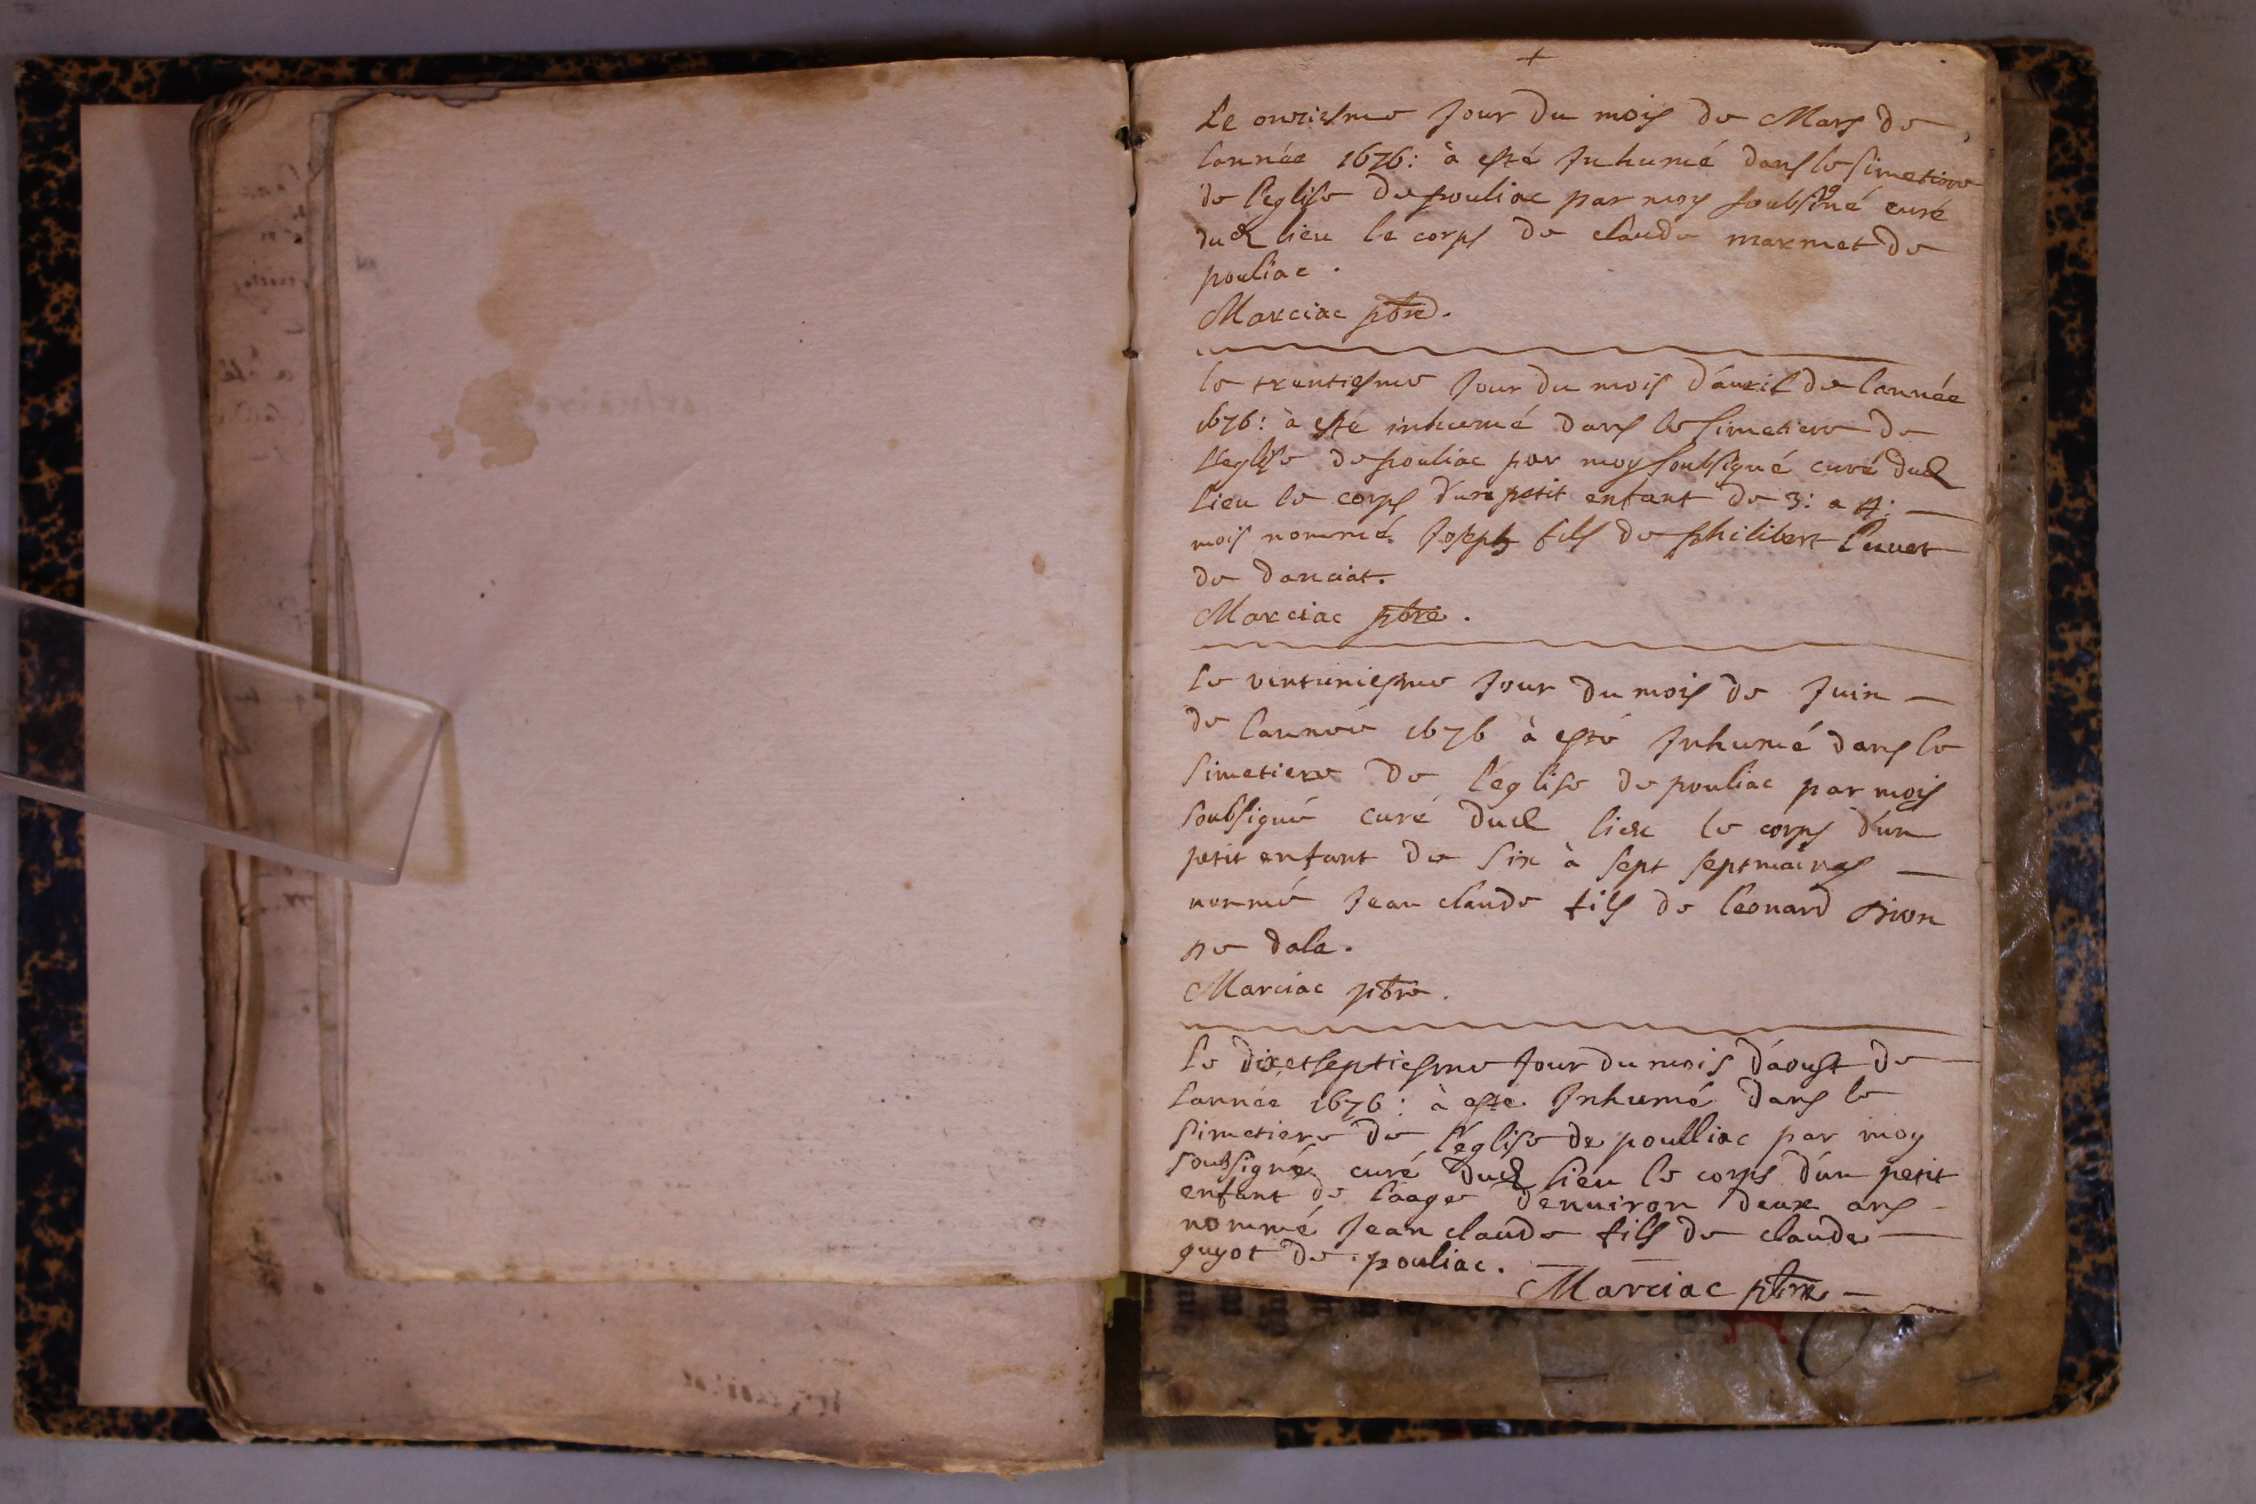 +
Le onziesme Jour du mois de Mars de
lannée 1676: à esté Inhumé dans le simetiere
de l'eglise de pouliac par moy soubsigné curé
dud lieu le corps de claude marmet de
pouliac.
Marciac pbre.
le trentiesme Jour du mois d'auril de lannée
1676: à esté inhumé dans le simetiere de
L'eglise de pouliac par moy soubsigné curé dud
lieu le corps d'un petit enfant de 3: a 4:
mois nommé Joseph fils de philibert
de danciat.
Marciac pbre.
Le vintuniesme Jour du mois de Juin
de lannée 1676 à esté Inhumé dans le
simetiere de l'eglise de pouliac par mois
soubsigné curé dud lieu le corps d'un
petit enfant de six à sept septmaines
nommé Jean claude fils de leonard
dala.
Marciac pbre.
Le dixetseptiesme Jour du mois d'aoust de
lannée 1676: à esté Inhumé dans le
simetiere de l'eglise de poulliac par moy
soubsigné curé dud lieu le corps d'un petit
enfant de l'aage d'enuiron deux ans
nommé Jean claude fils de claude
guyot de pouliac.
Marciac pbre